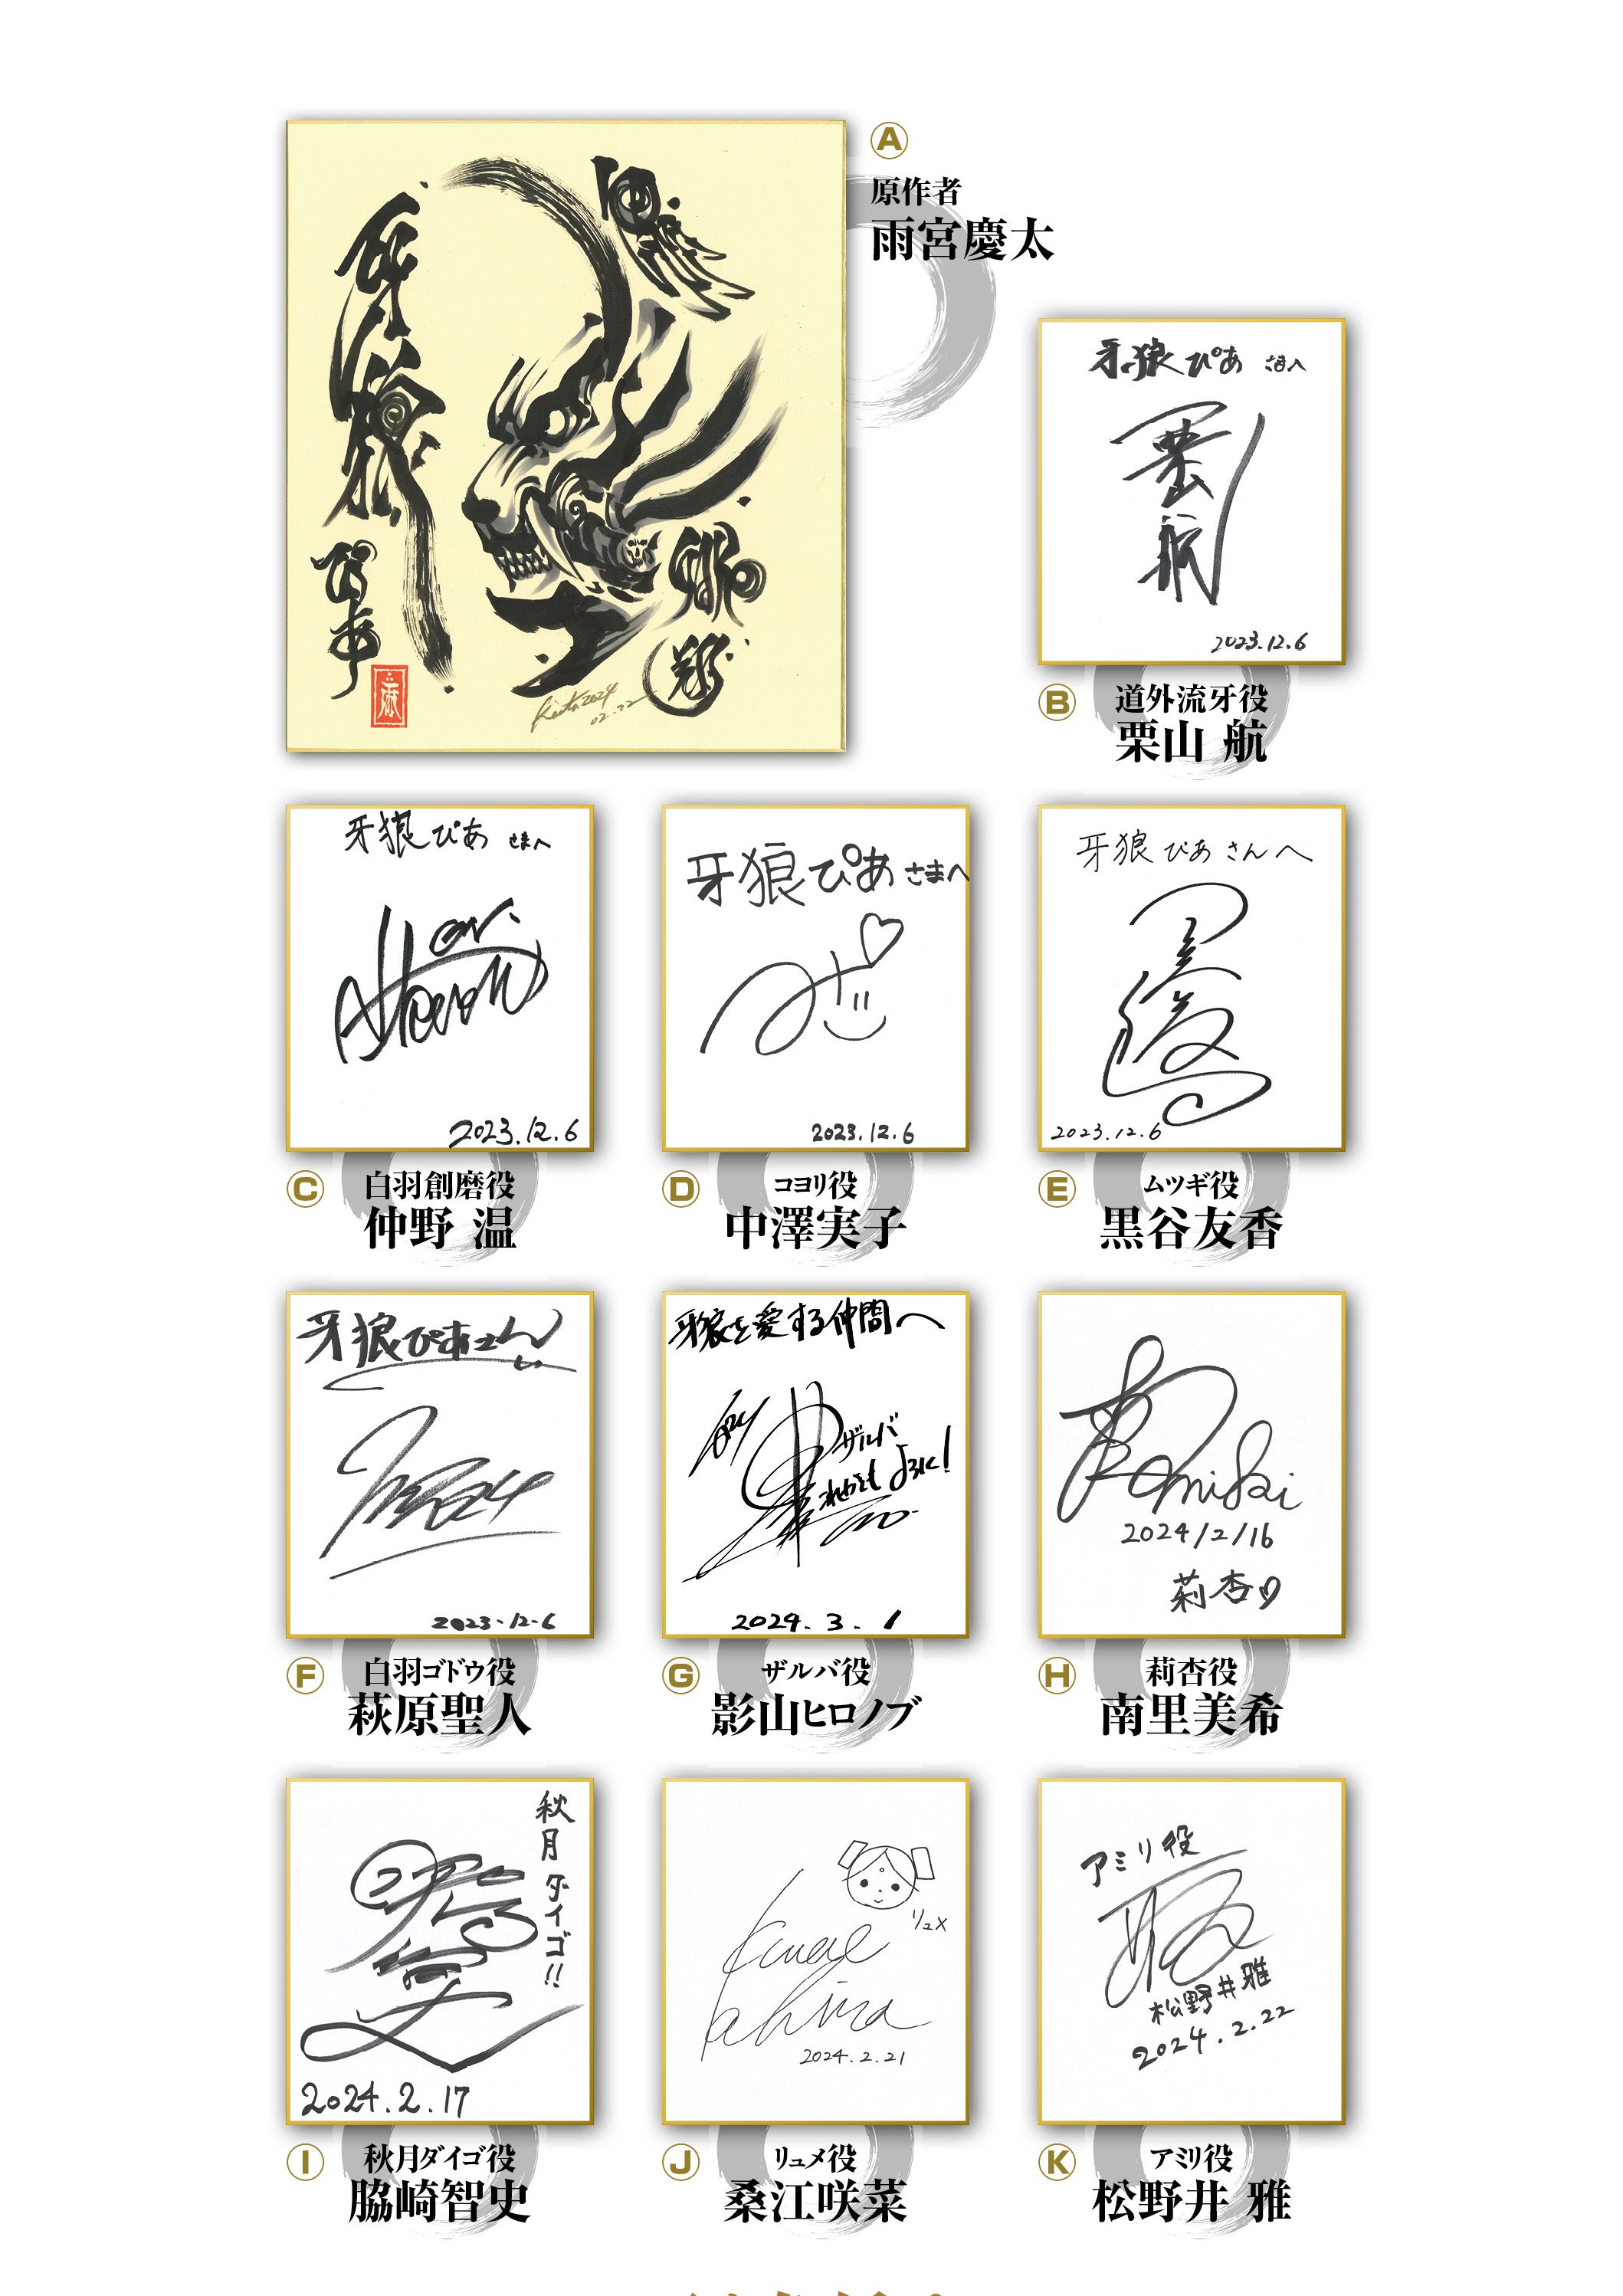 A
原作者
雨宮慶太
牙狼
ぴあ
Keita 2024
02.22
牙狼ぴあ さまへ
栗山航
2023.12.6
B
道外流牙役
栗山 航
牙狼ぴあ さまへ
2023.12.6
C
白羽創磨役
仲野 温
牙狼ぴあ さまへ
2023.12.6
D
コヨリ役
中澤実子
牙狼 ぴあ さんへ
2023.12.6
E
ムツギ役
黒谷友香
牙狼ぴあさん
2023.12.6
F
白羽ゴドウ役
萩原聖人
牙狼を愛する仲間へ
ザルバ
これからも
よろしく!
2024.3.1
G
ザルバ役
影山ヒロノブ
2024/2/16
莉杏
H
莉杏役
南里美希
秋月ダイゴ!!
2024.2.17
I
秋月ダイゴ役
脇崎智史
リュメ
2024.2.21
J
リュメ役
桑江咲菜
アミリ役
松野井雅
2024.2.22
K
アミリ役
松野井 雅